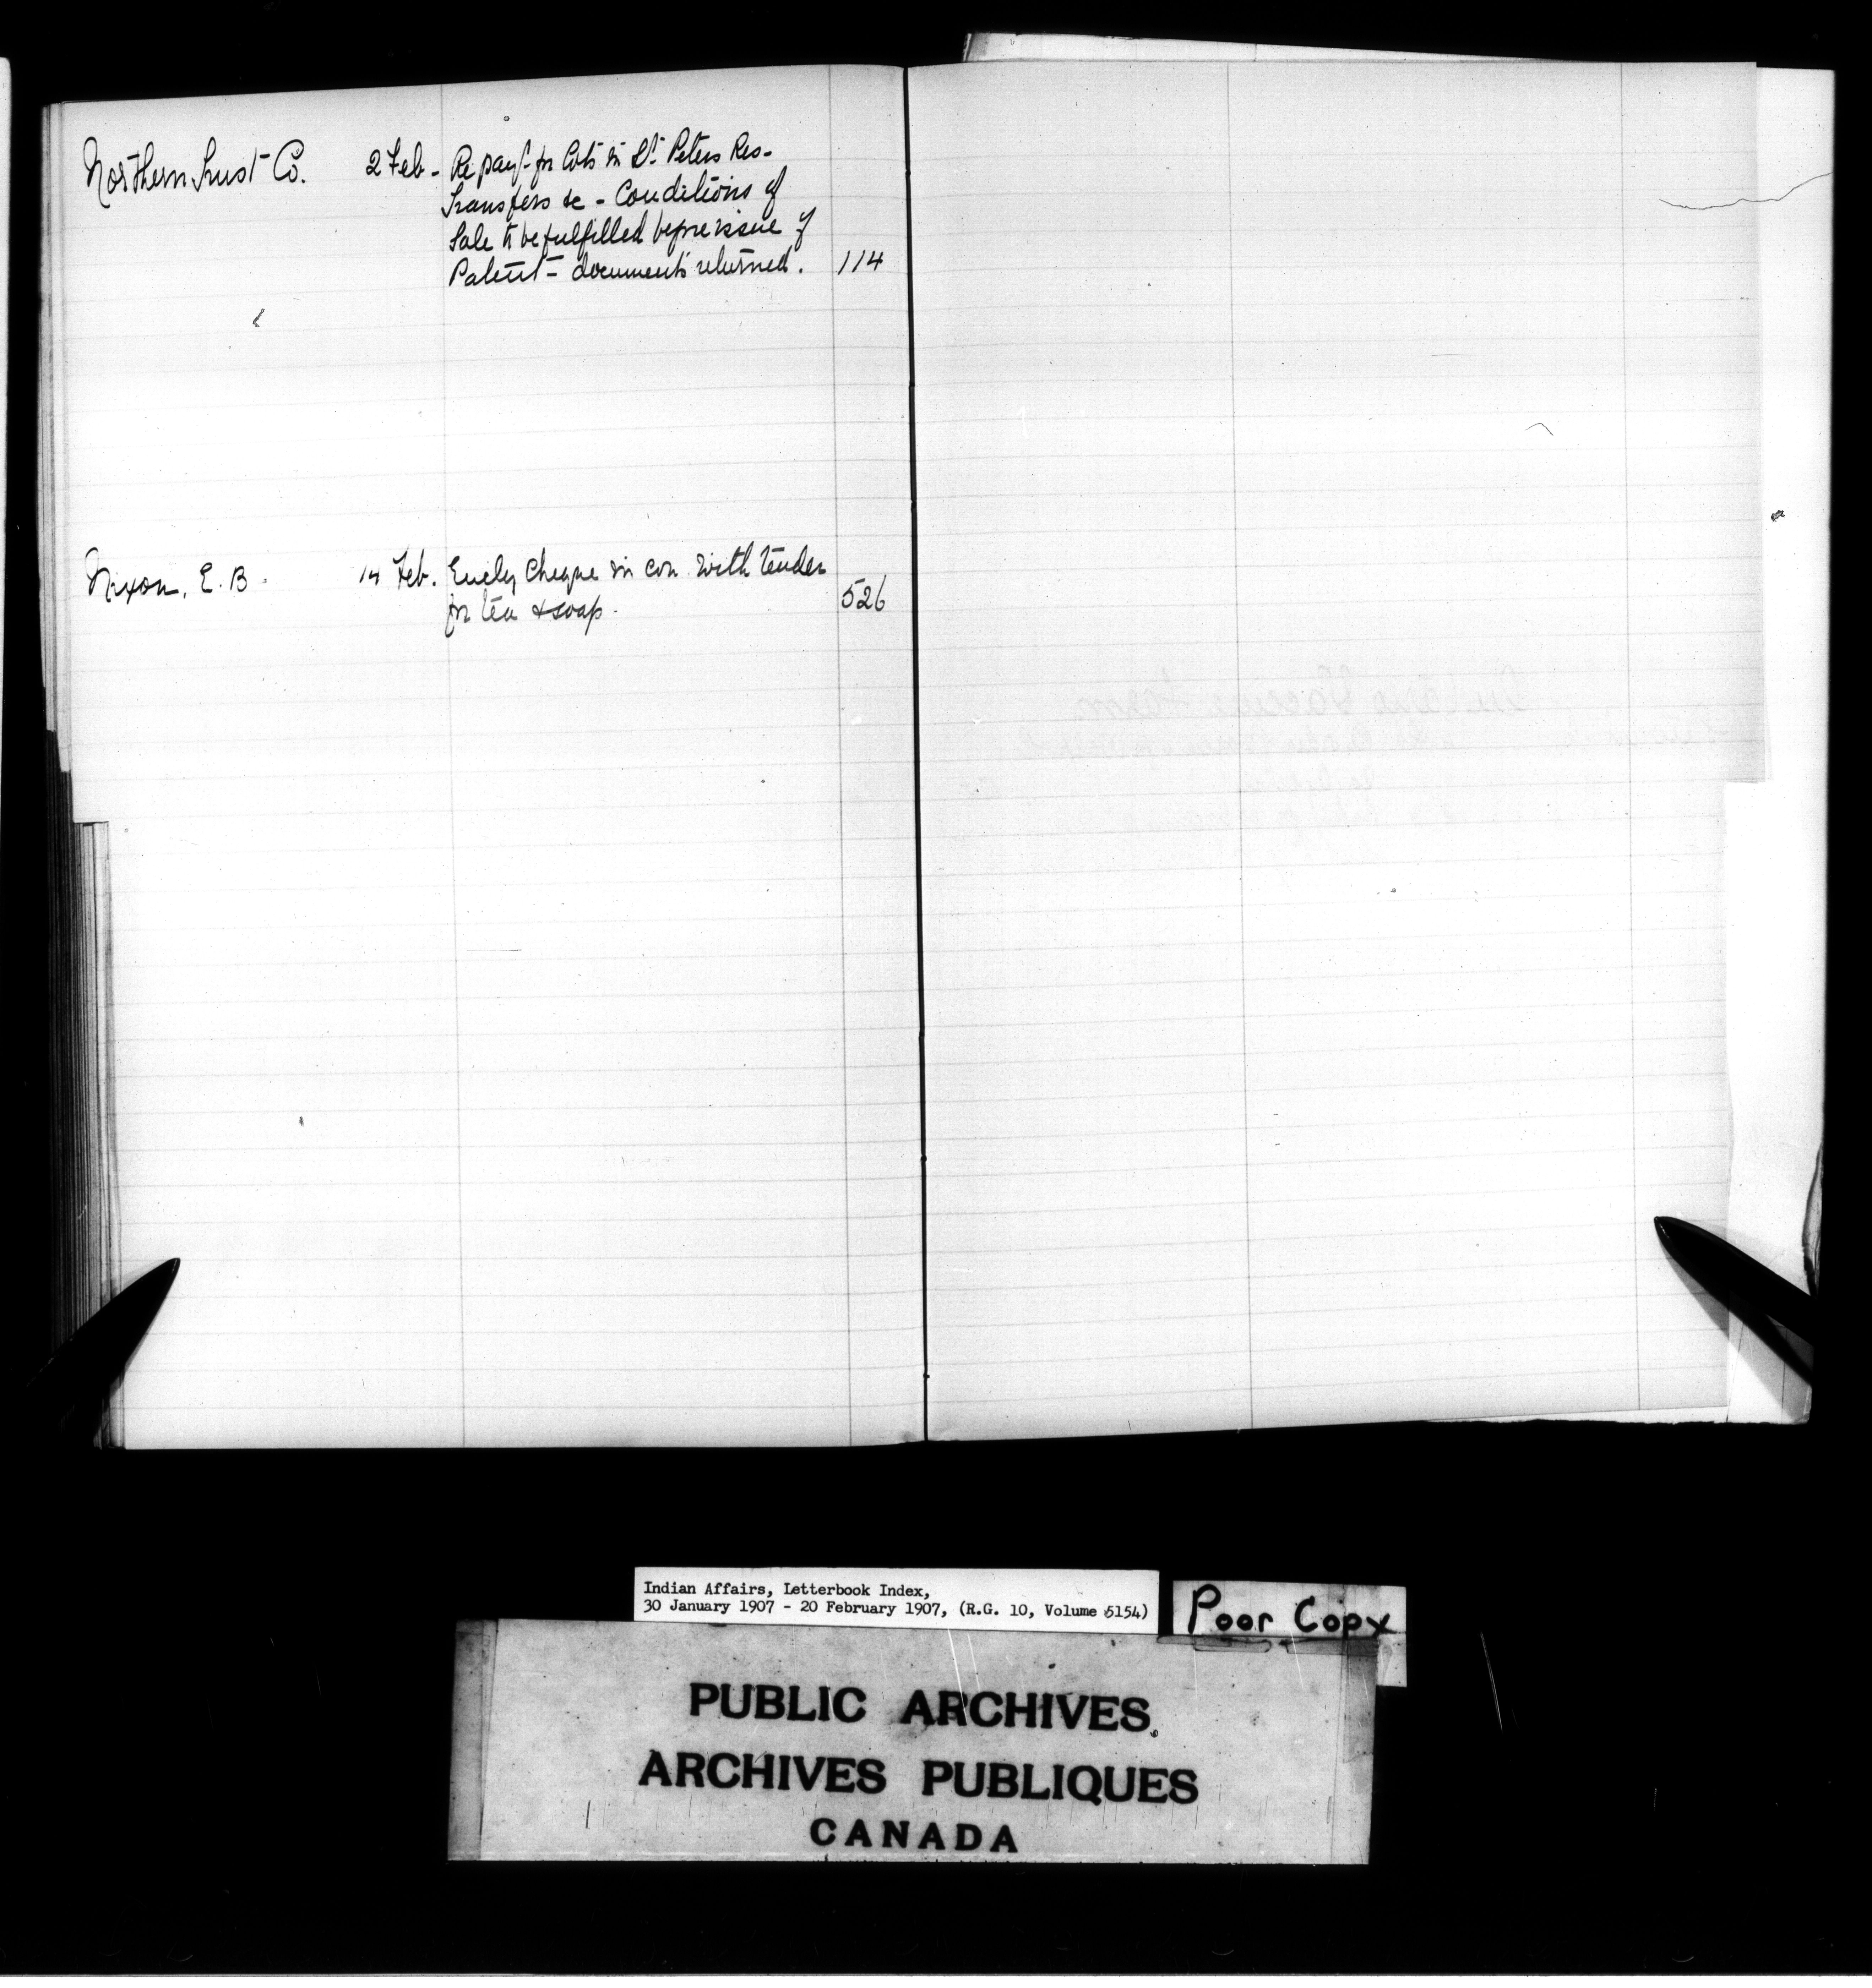 Northern Trust Co. 2 Feb - Re payt for lots in St. Peters Res-
Transfers &c - Conditions of
Sale to be fulfilled before issue of
Patent - documents returned. 114
Nixon, E. B. 14 Feb. Encly cheque in con with tender
for tea & soap. 526
Indian Affairs, Letterbook Index,
30 January 1907 - 20 February 1907, (R.G. 10, Volume 5154)
Poor Copy
PUBLIC ARCHIVES
ARCHIVES PUBLIQUES
CANADA